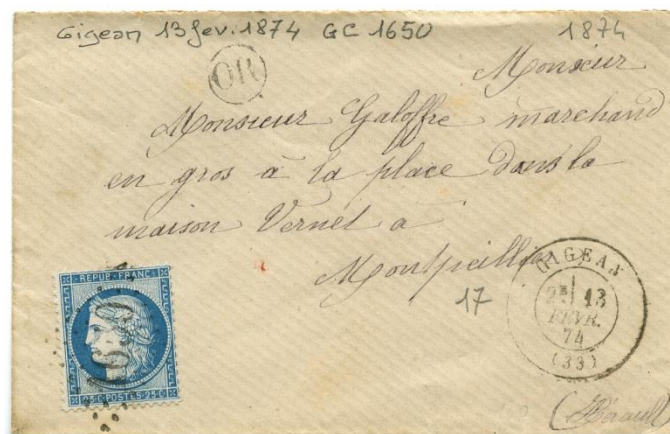 Gigean 13 fev. 1874 GC 1650 1874
OR
Monsieur
Monsieur Galoffre marchand
en gros à la place dans la
maison Vernet a
Montpeillier
17
GIGEAN
2E 13
FEVR.
74
(33)
REPUB. FRANC.
1650
25 C. POSTES 25 C.
(Hérault)